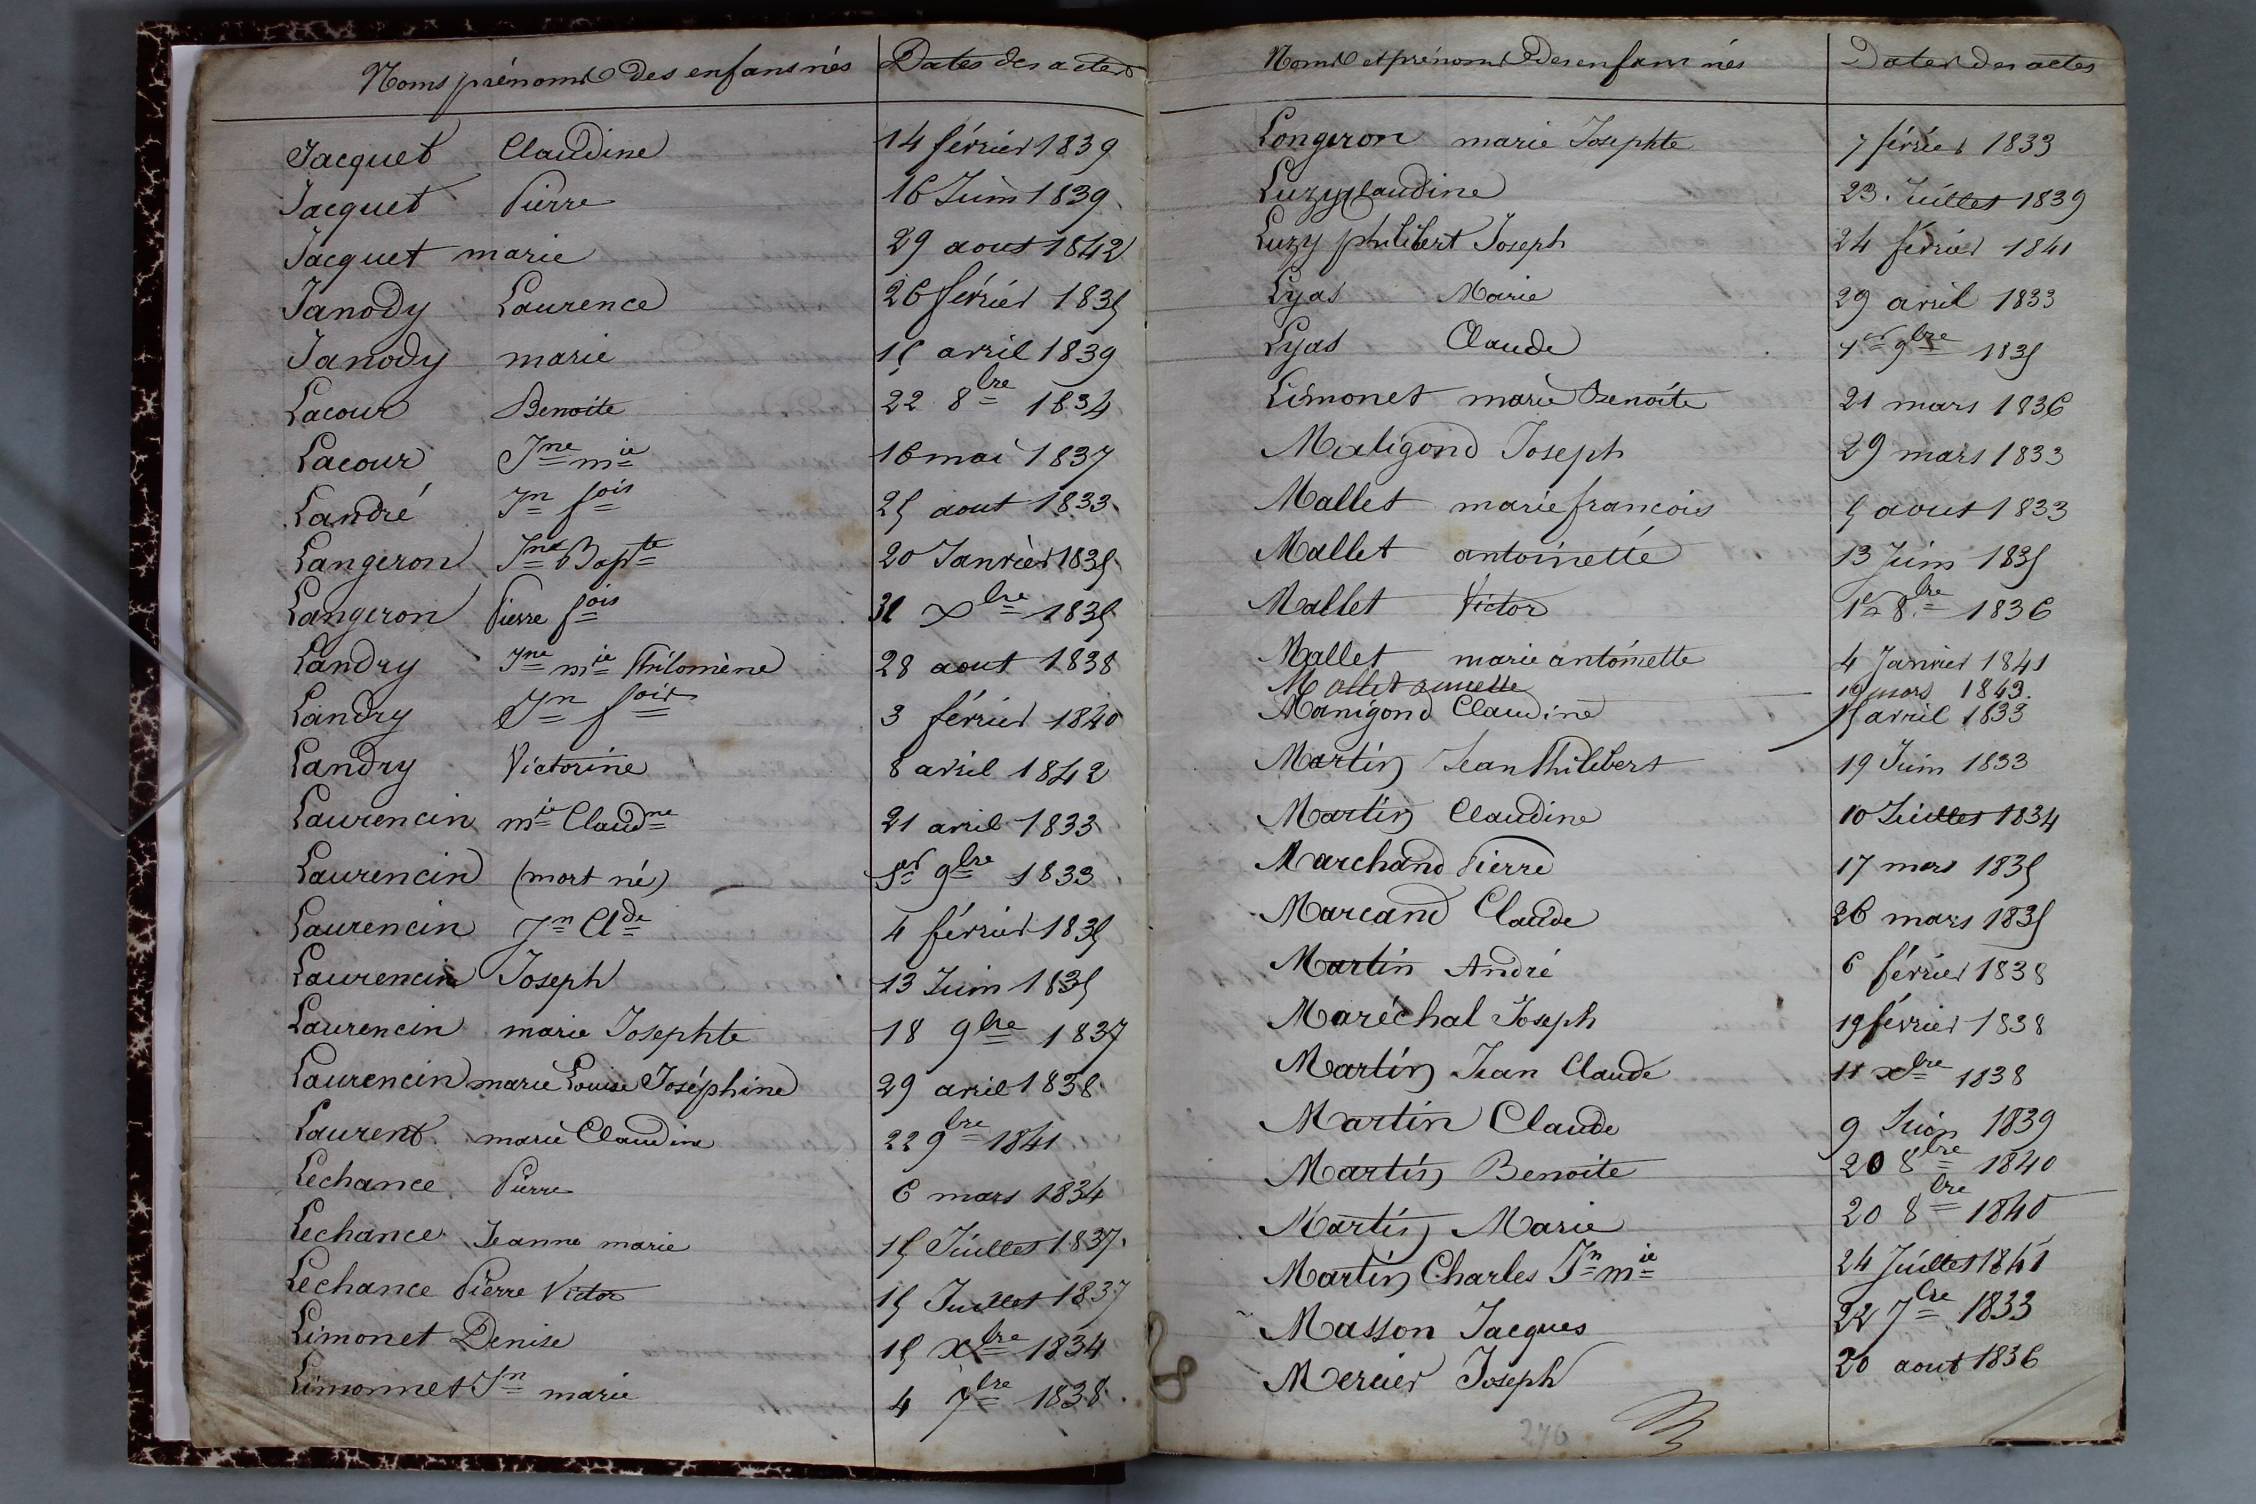 Noms prénoms des enfans nés Dates des actes
Jacquet Claudine 14 février 1839
Jacquet Pierre 16 Juin 1839
Jacquet marie 29 aout 1842
Janody Laurence 26 février 1835
Janody marie 15 avril 1839
Lacour Benoite 22 8bre 1834
Lacour Jne mie 16 mai 1837
Landré Jn fois 25 aout 1833
Langeron Jne Bapte 20 Janvier 1835
Langeron Pierre fois 31 Xbre 1835
Landry Jne mie Philomène 28 aout 1838
Landry Jn fois 3 février 1840
Landry Victorine 8 avril 1842
Laurencin mie Claudne 21 avril 1833
Laurencin (mort né) 1er 9bre 1833
Laurencin Jn Clde 4 février 1835
Laurencin Joseph 13 Juin 1835
Laurencin marie Josephte 18 9bre 1837
Laurencin marie Louise Joséphine 29 avril 1838
Laurent marie Claudine 22 9bre 1841
Lechance Pierre 6 mars 1834
Lechance Jeanne marie 15 Juillet 1837
Lechance Pierre Victor 15 Juillet 1837
Limonet Denise 15 Xbre 1834
Limonnet Jn marie 4 7bre 1838
Noms et prénoms des enfans nés Dates des actes
Longeron marie Josephte 7 février 1833
Luzy Claudine 23 Juillet 1839
Luzy philibert Joseph 24 février 1841
Lyas Marie 29 avril 1833
Lyas Claude 1er 9bre 1835
Limonet marie Benoite 21 mars 1836
Maligond Joseph 29 mars 1833
Mallet marie francois 5 aout 1833
Mallet antoinette 13 Juin 1835
Mallet Victor 1er 8bre 1836
Mallet marie antoinette 4 Janvier 1841
Mallet annette mars 1843
Manigond Claudine 15 avril 1833
Martin Jean Philibert 19 Juin 1833
Martin Claudine 10 Juillet 1834
Marchand Pierre 17 mars 1835
Marcand Claude 26 mars 1835
Martin André 6 février 1838
Maréchal Joseph 19 février 1838
Martin Jean Claude 11 xbre 1838
Martin Claude 9 Juin 1839
Martin Benoite 20 8bre 1840
Martin Marie 20 8bre 1840
Martin Charles Jn mie 24 Juillet 1841
Masson Jacques 22 7bre 1833
Mercier Joseph 20 aout 1836
276